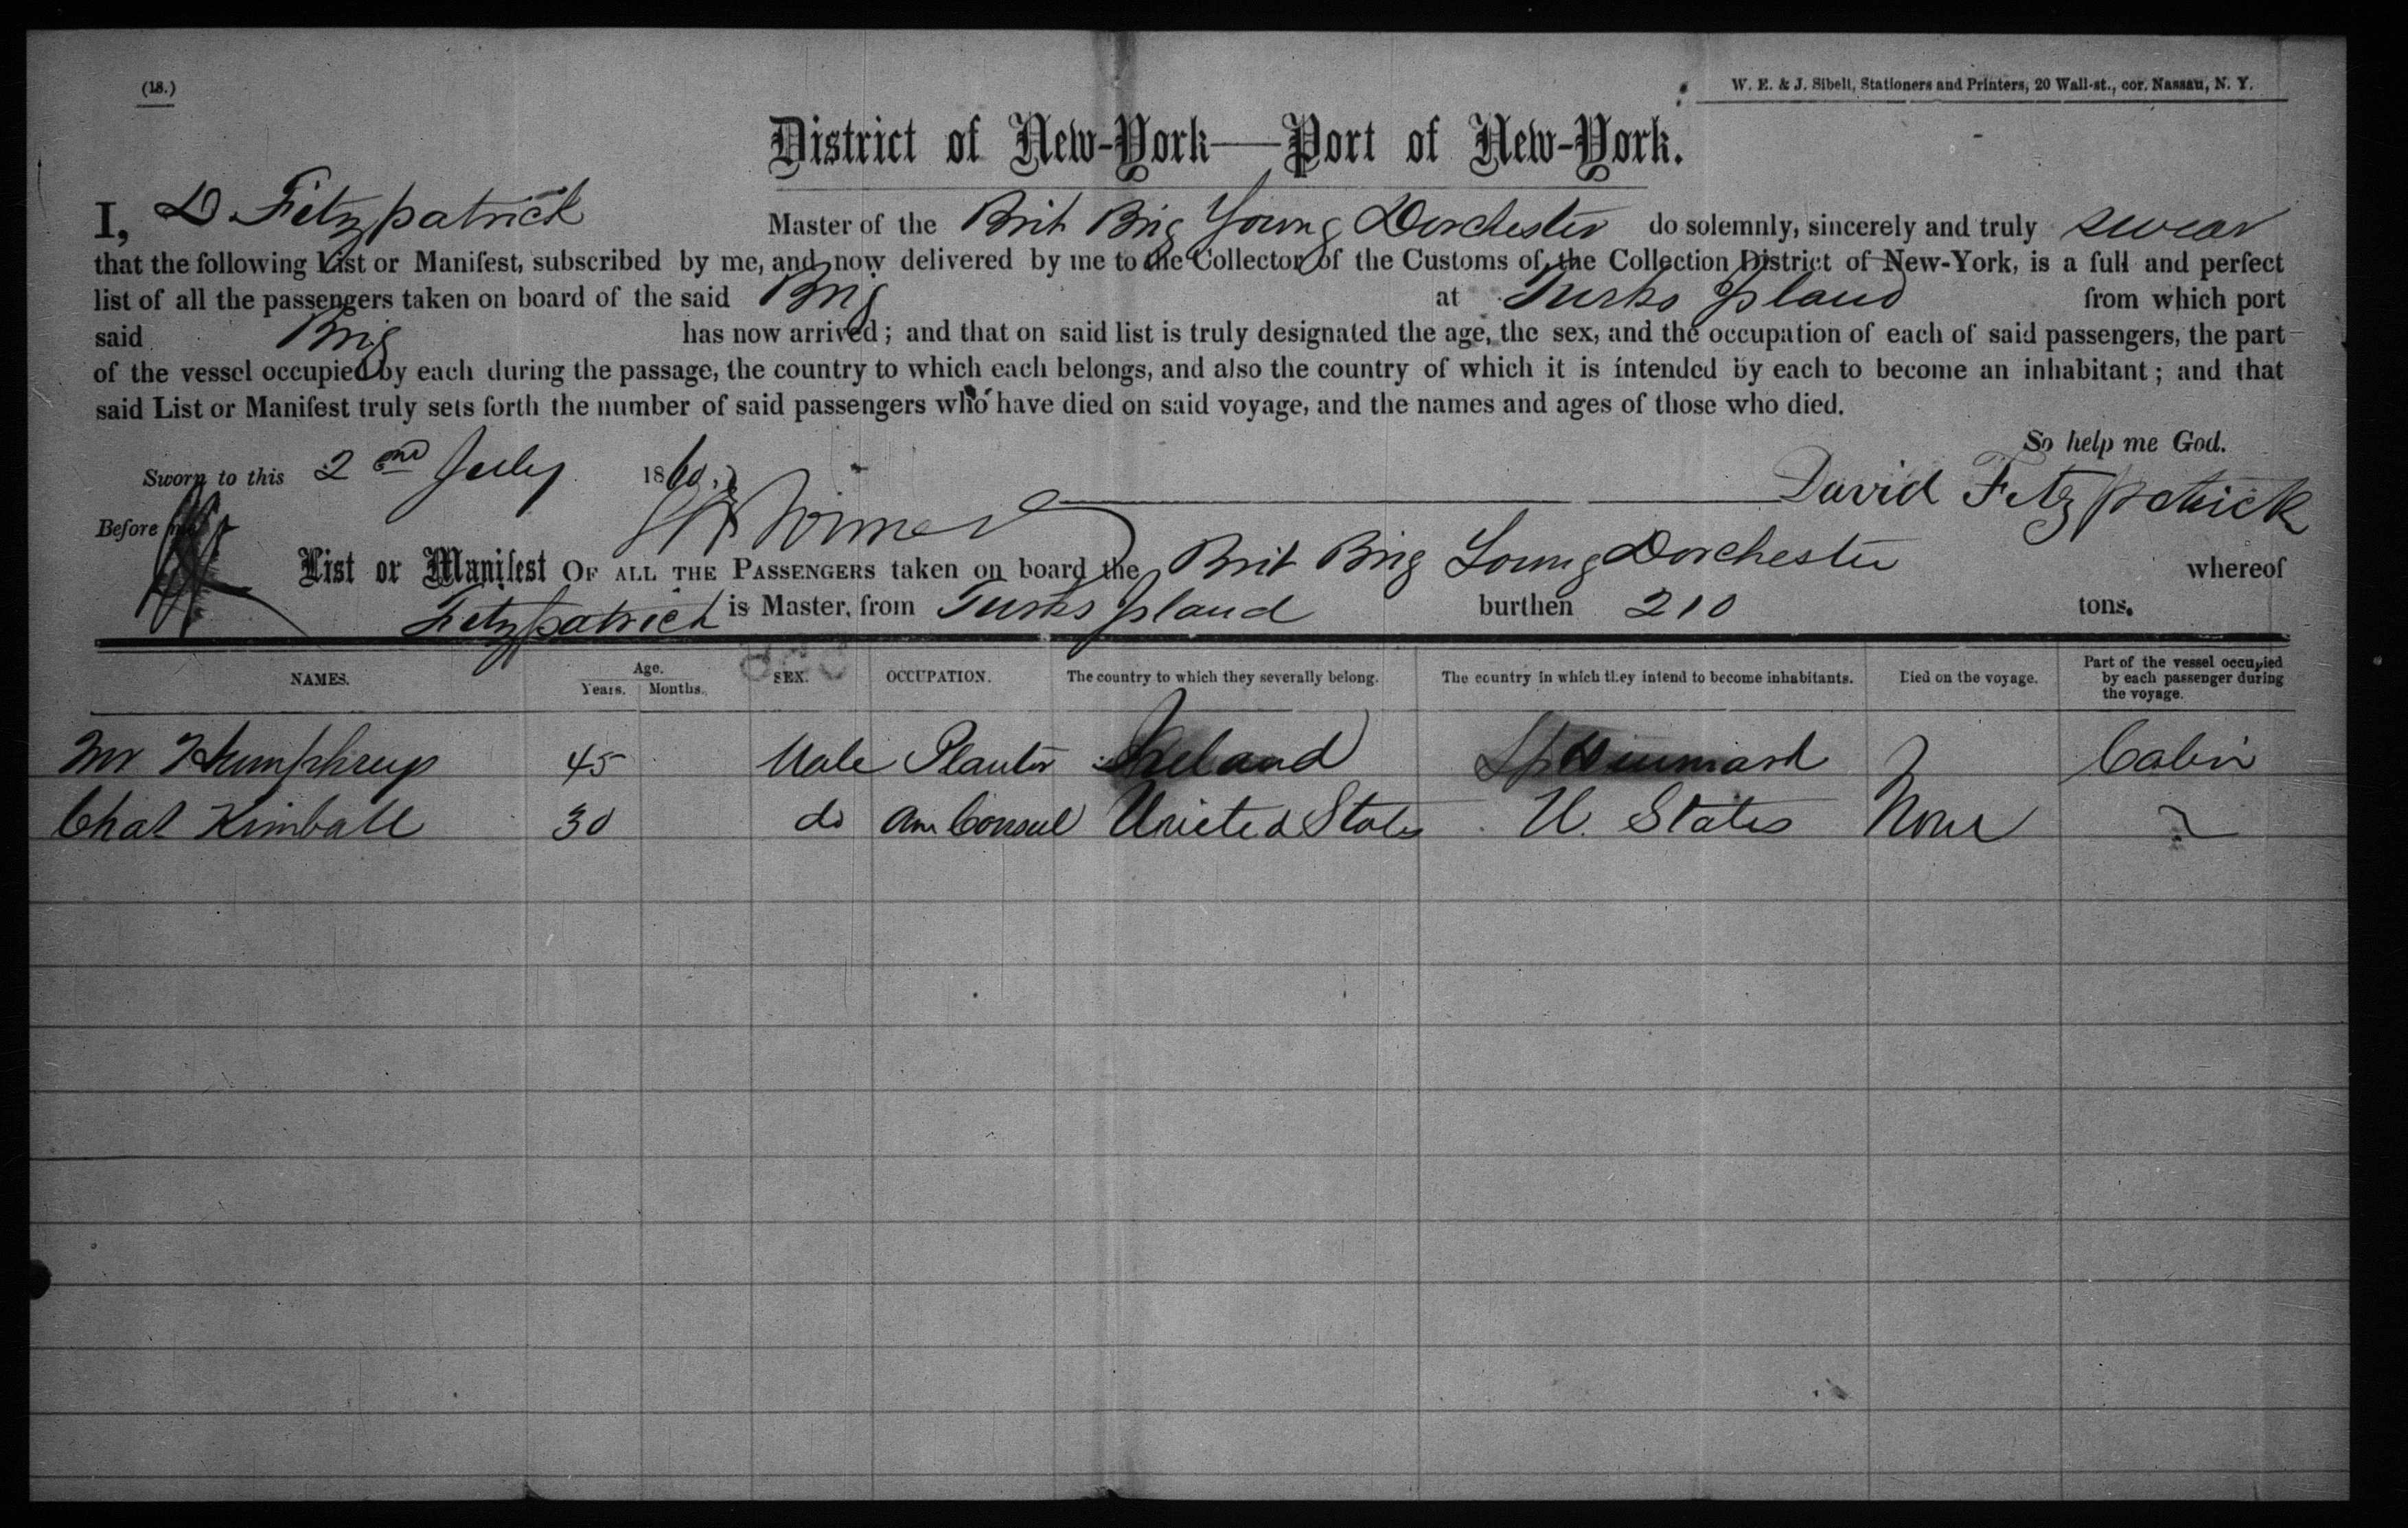 (18.)
W. E. & J. Sibell, Stationers and Printers, 20 Wall-st., cor. Nassau, N. Y.
District of New-York—Port of New-York.
I, D Fitzpatrick Master of the Brit Brig Young Dorchester do solemnly, sincerely and truly swear
that the following List or Manifest, subscribed by me, and now delivered by me to the Collector of the Customs of the Collection District of New-York, is a full and perfect
list of all the passengers taken on board of the said Brig at Turks Island from which port
said Brig has now arrived; and that on said list is truly designated the age, the sex, and the occupation of each of said passengers, the part
of the vessel occupied by each during the passage, the country to which each belongs, and also the country of which it is intended by each to become an inhabitant; and that
said List or Manifest truly sets forth the number of said passengers who have died on said voyage, and the names and ages of those who died.
So help me God.
Sworn to this 2nd July 1860.
David Fitzpatrick
Before me
List or Manifest OF ALL THE PASSENGERS taken on board the Brit Brig Young Dorchester whereof
Fitzpatrick is Master, from Turks Island burthen 210 tons.
NAMES. Age. Years. Months. SEX. OCCUPATION. The country to which they severally belong. The country in which they intend to become inhabitants. Died on the voyage. Part of the vessel occupied by each passenger during the voyage.
Mr Humphreys 45 Male Planter Ireland Cabin
Chas Kimball 30 do Am Consul United States U. States None